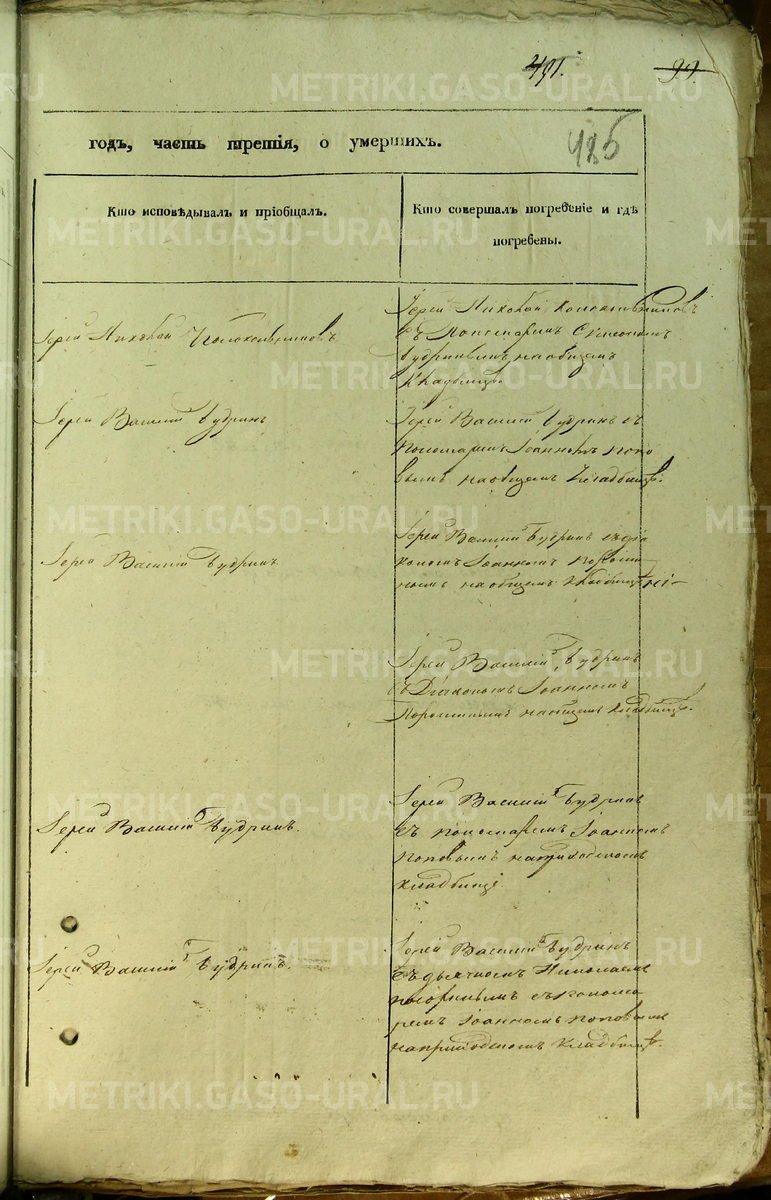 491. 99
485
годъ, часть третія, о умершихъ.
Кто исповѣдывалъ и пріобщалъ.
Кто совершалъ погребеніе и гдѣ
погребены.
Іерей Николай
Іерей Николай
съ Пономаремъ Симеономъ
Будринымъ на общемъ
Кладбищѣ.
Іерей Василій Будринъ
Іерей Василій Будринъ съ
Пономаремъ Іоанномъ Попо
вымъ на общемъ Кладбищѣ.
Іерей Василій Будринъ
Іерей Василій Будринъ съ діа
кономъ Іоанномъ
на общемъ Кладбищѣ
Іерей Василій Будринъ
съ Діакономъ Іоанномъ
на общемъ Кладбищѣ.
Іерей Василій Будринъ.
Іерей Василій Будринъ
съ пономаремъ Іоанномъ
Поповымъ на приходскомъ
кладбищѣ
Іерей Василій Будринъ.
Іерей Василій Будринъ
съ дьячкомъ Николаемъ
съ понома
ремъ Іоанномъ Поповымъ
на приходскомъ Кладбищѣ.
METRIKI.GASO-URAL.RU